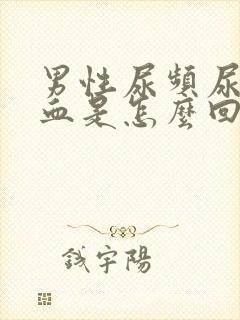 男性尿頻尿
血是怎麼回
錢宇陽